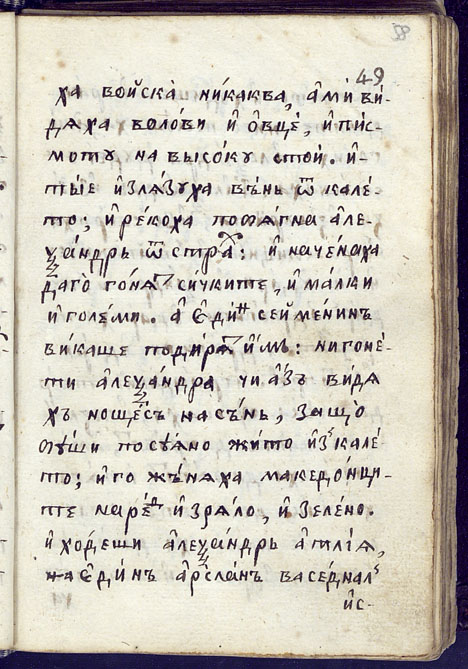 49
58
ха войска̀ ника́ква, а҆мѝ ви́-
дѧха волови и҆ ѻ҆вце́, и҆ пи́с-
моту на высо́ку стои́. и҆-
ты́е и҆злѧ́зуха вънь ѿ кале́-
то; и҆ ре́коха потѧ́гна але-
ѯа́ндрь ѿ страⷯ: и҆ наче́наха
даго̀ го́нѧⷮ сичките, и҆ ма́лки
и҆ голе́ми. а҆ є҆ди́ⁿ сейме́нинъ
ви́каше поди́рѧⷮ и҆мъ: нигоне́-
ти а҆леѯа́ндра чи а҆́зъ ви́дѧ
хъ ноще́съ насъ́нь, защо̀
ѹши посѣ́ѧно жи́то и҆з кале́-
то; и҆го жъ́нѧха македо́нци-
те наре́ⷣ и҆ зрѧ́ло, и҆ зеле́но.
и҆ хо́деши а҆леѯа́ндрь а҆тлі́ѧ,
на є҆ди́нъ а҆рсла́нъ васе́днал
и҆с-